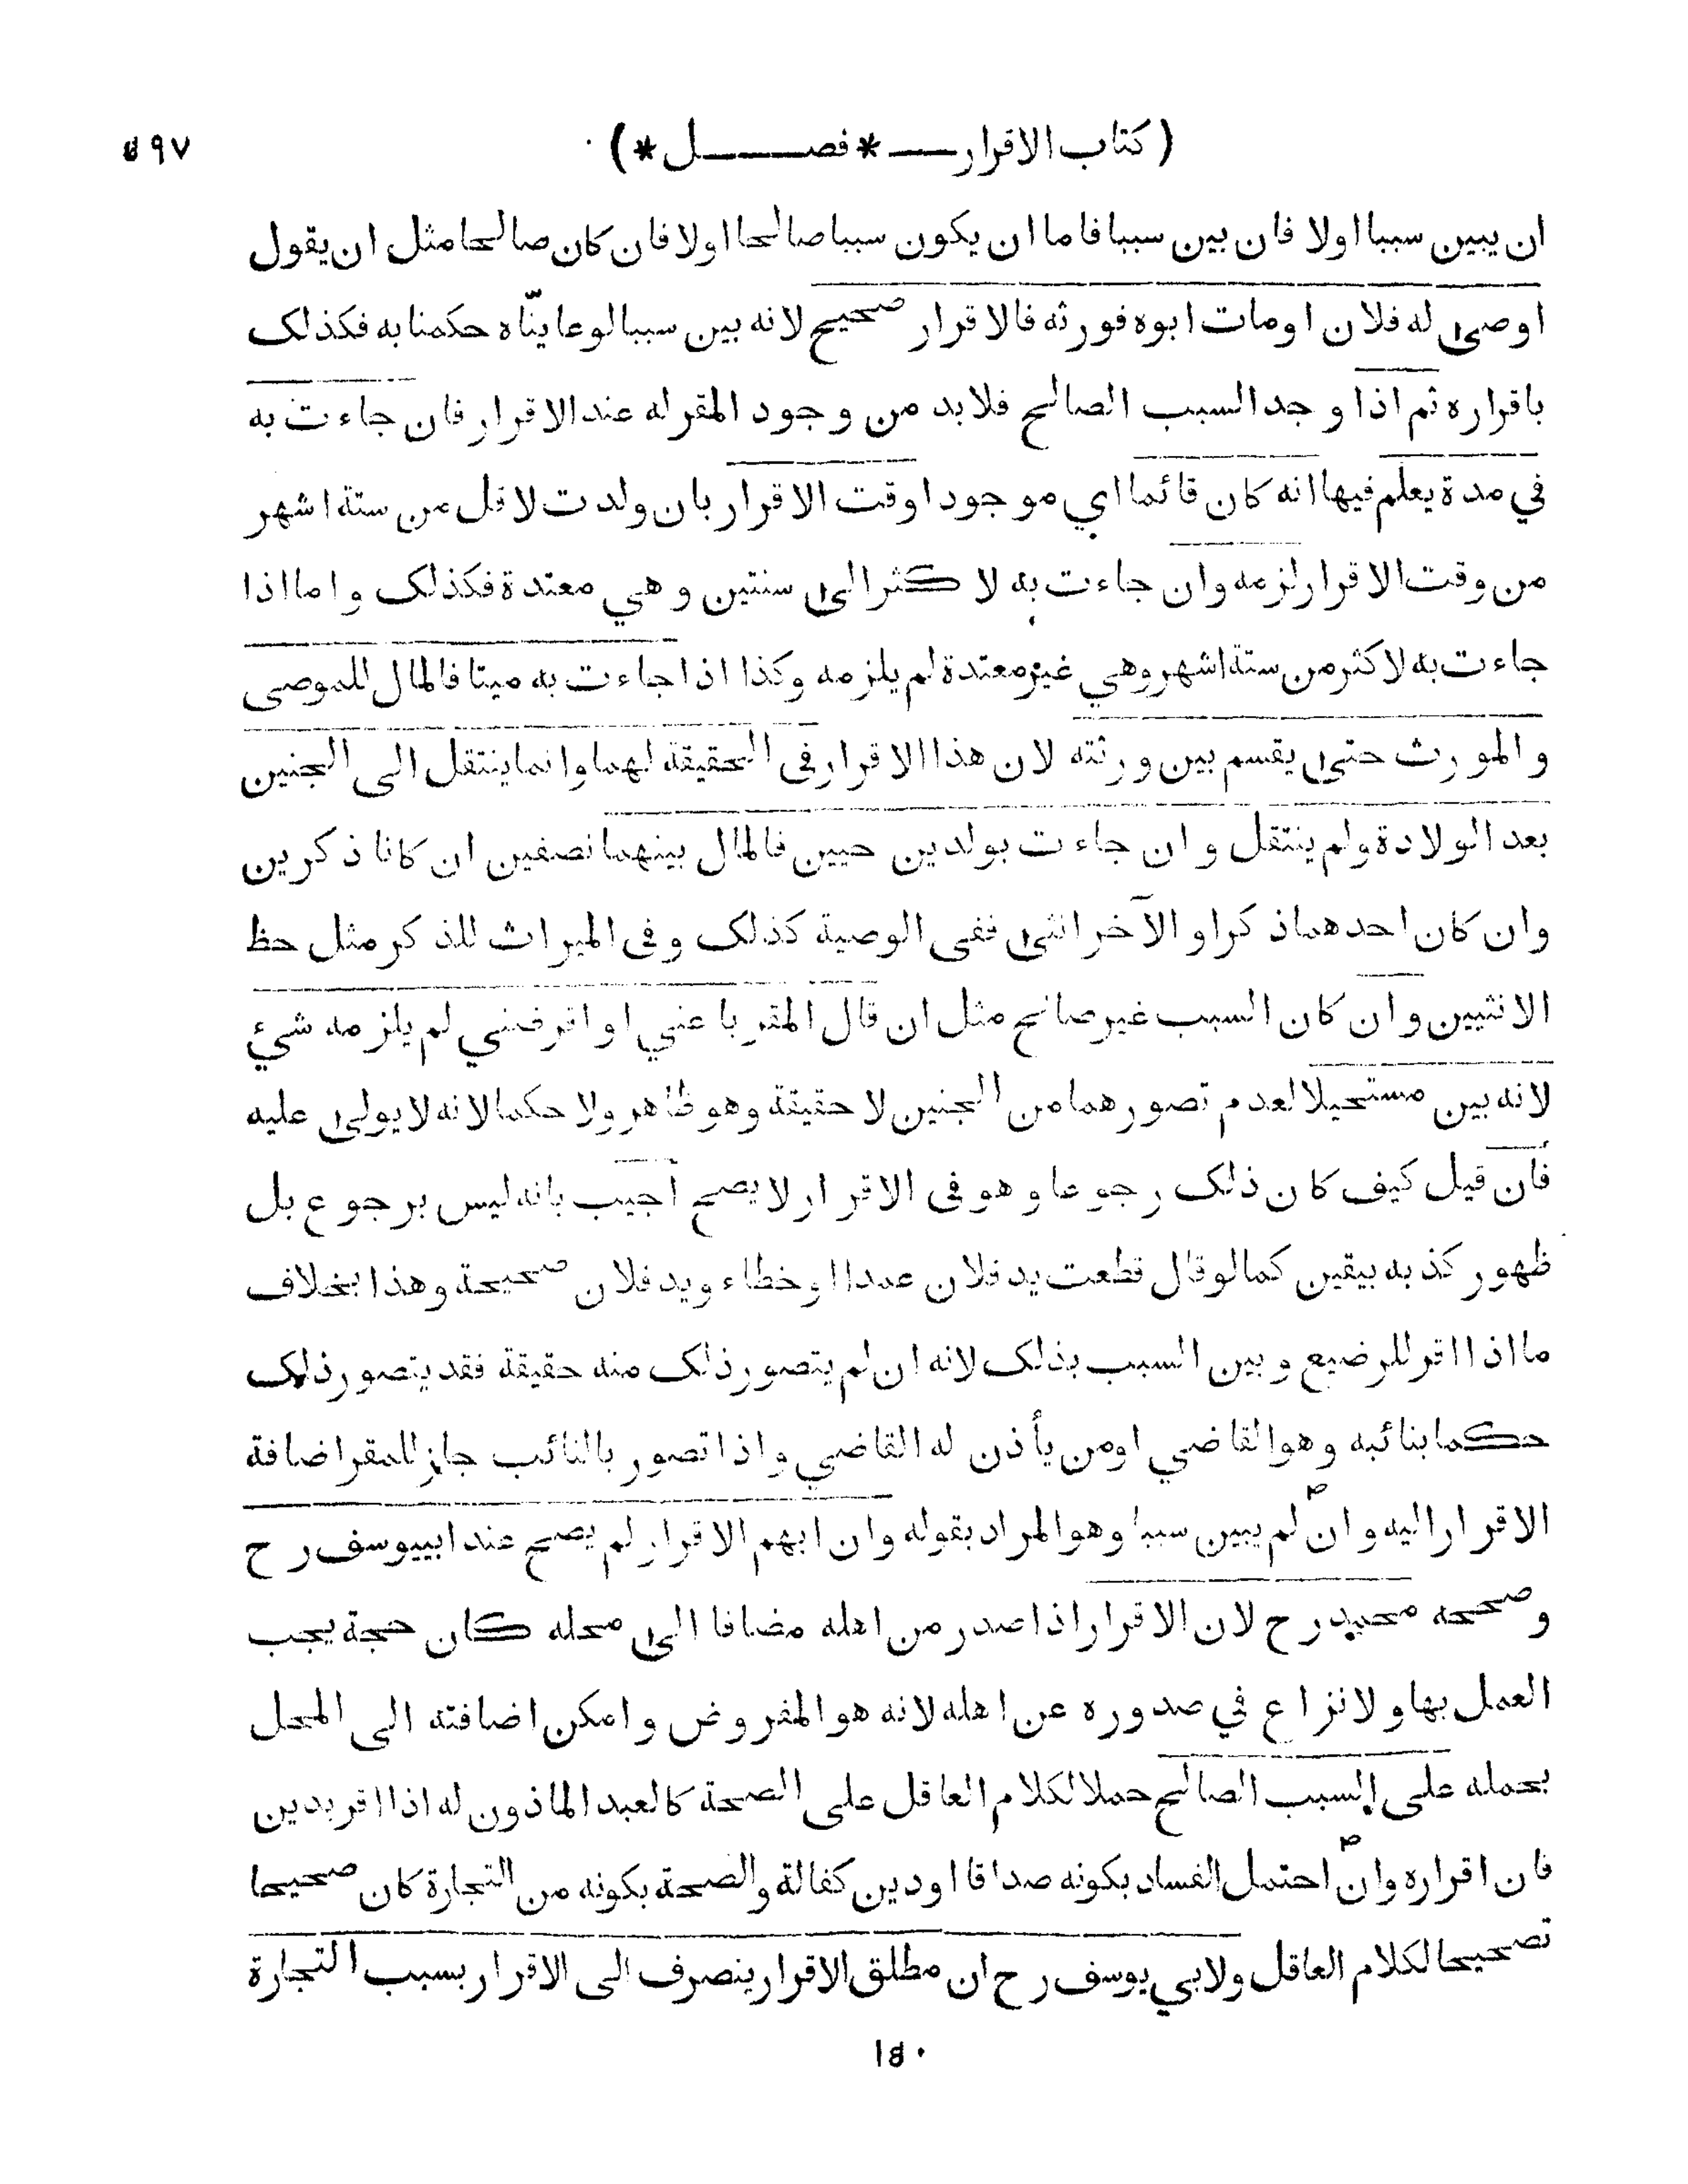 ( كتاب الاقرار — * فصـــل * ) ٥٩٧
ان يبين سببا اولا فان بين سببا فاما ان يكون سببا صالحا اولا فان كان صالحا مثل ان يقول
اوصى له فلان اومات ابوه فورثه فالاقرار صحيح لانه بين سببا لو عاينّاه حكمنا به فكذلك
باقراره ثم اذا وجد السبب الصالح فلابد من وجود المقر له عند الاقرار فان جاءت به
في مدة يعلم فيها انه كان قائما اي موجودا وقت الاقرار بان ولدت لاقل من ستة اشهر
من وقت الاقرار لزمه وان جاءت به لاكثر الى سنتين وهي معتدة فكذلك واما اذا
جاءت به لاكثر من ستة اشهر وهي غير معتدة لم يلزمه وكذا اذا جاءت به ميتا فالمال للموصى
والمورث حتى يقسم بين ورثته لان هذا الاقرار فى الحقيقة لهما وانما ينتقل الى الجنين
بعد الولادة ولم ينتقل وان جاءت بولدين حيين فالمال بينهما نصفين ان كانا ذكرين
وان كان احدهما ذكرا والآخر انثى ففى الوصية كذلك وفى الميراث للذكر مثل حظ
الانثيين وان كان السبب غير صالح مثل ان قال المقر باعني او اقرضني لم يلزمه شيء
لانه بين مستحيلا لعدم تصورهما من الجنين لا حقيقة وهو ظاهر ولا حكما لانه لا يولى عليه
فان قيل كيف كان ذلك رجوعا وهو فى الاقرار لا يصح اجيب بانه ليس برجوع بل
ظهور كذبه بيقين كما لو قال قطعت يد فلان عمدا او خطاء ويد فلان صحيحة وهذا بخلاف
ما اذا اقر للرضيع وبين السبب بذلك لانه ان لم يتصور ذلك منه حقيقة فقد يتصور ذلك
حكما بنائبه وهو القاضي اومن يأذن له القاضي واذا تصور بالنائب جاز للمقر اضافة
الاقرار اليه وان لم يبين سببا وهو المراد بقوله وان ابهم الاقرار لم يصح عند ابييوسف رح
وصححه محمد رح لان الاقرار اذا صدر من اهله مضافا الى محله كان حجة يجب
العمل بها ولا نزاع في صدوره عن اهله لانه هو المفروض وامكن اضافته الى المحل
بحمله على السبب الصالح حملا لكلام العاقل على الصحة كالعبد الماذون له اذا اقر بدين
فان اقراره وان احتمل الفساد بكونه صداقا او دين كفالة والصحة بكونه من التجارة كان صحيحا
تصحيحا لكلام العاقل ولابي يوسف رح ان مطلق الاقرار ينصرف الى الاقرار بسبب التجارة
١٥٠